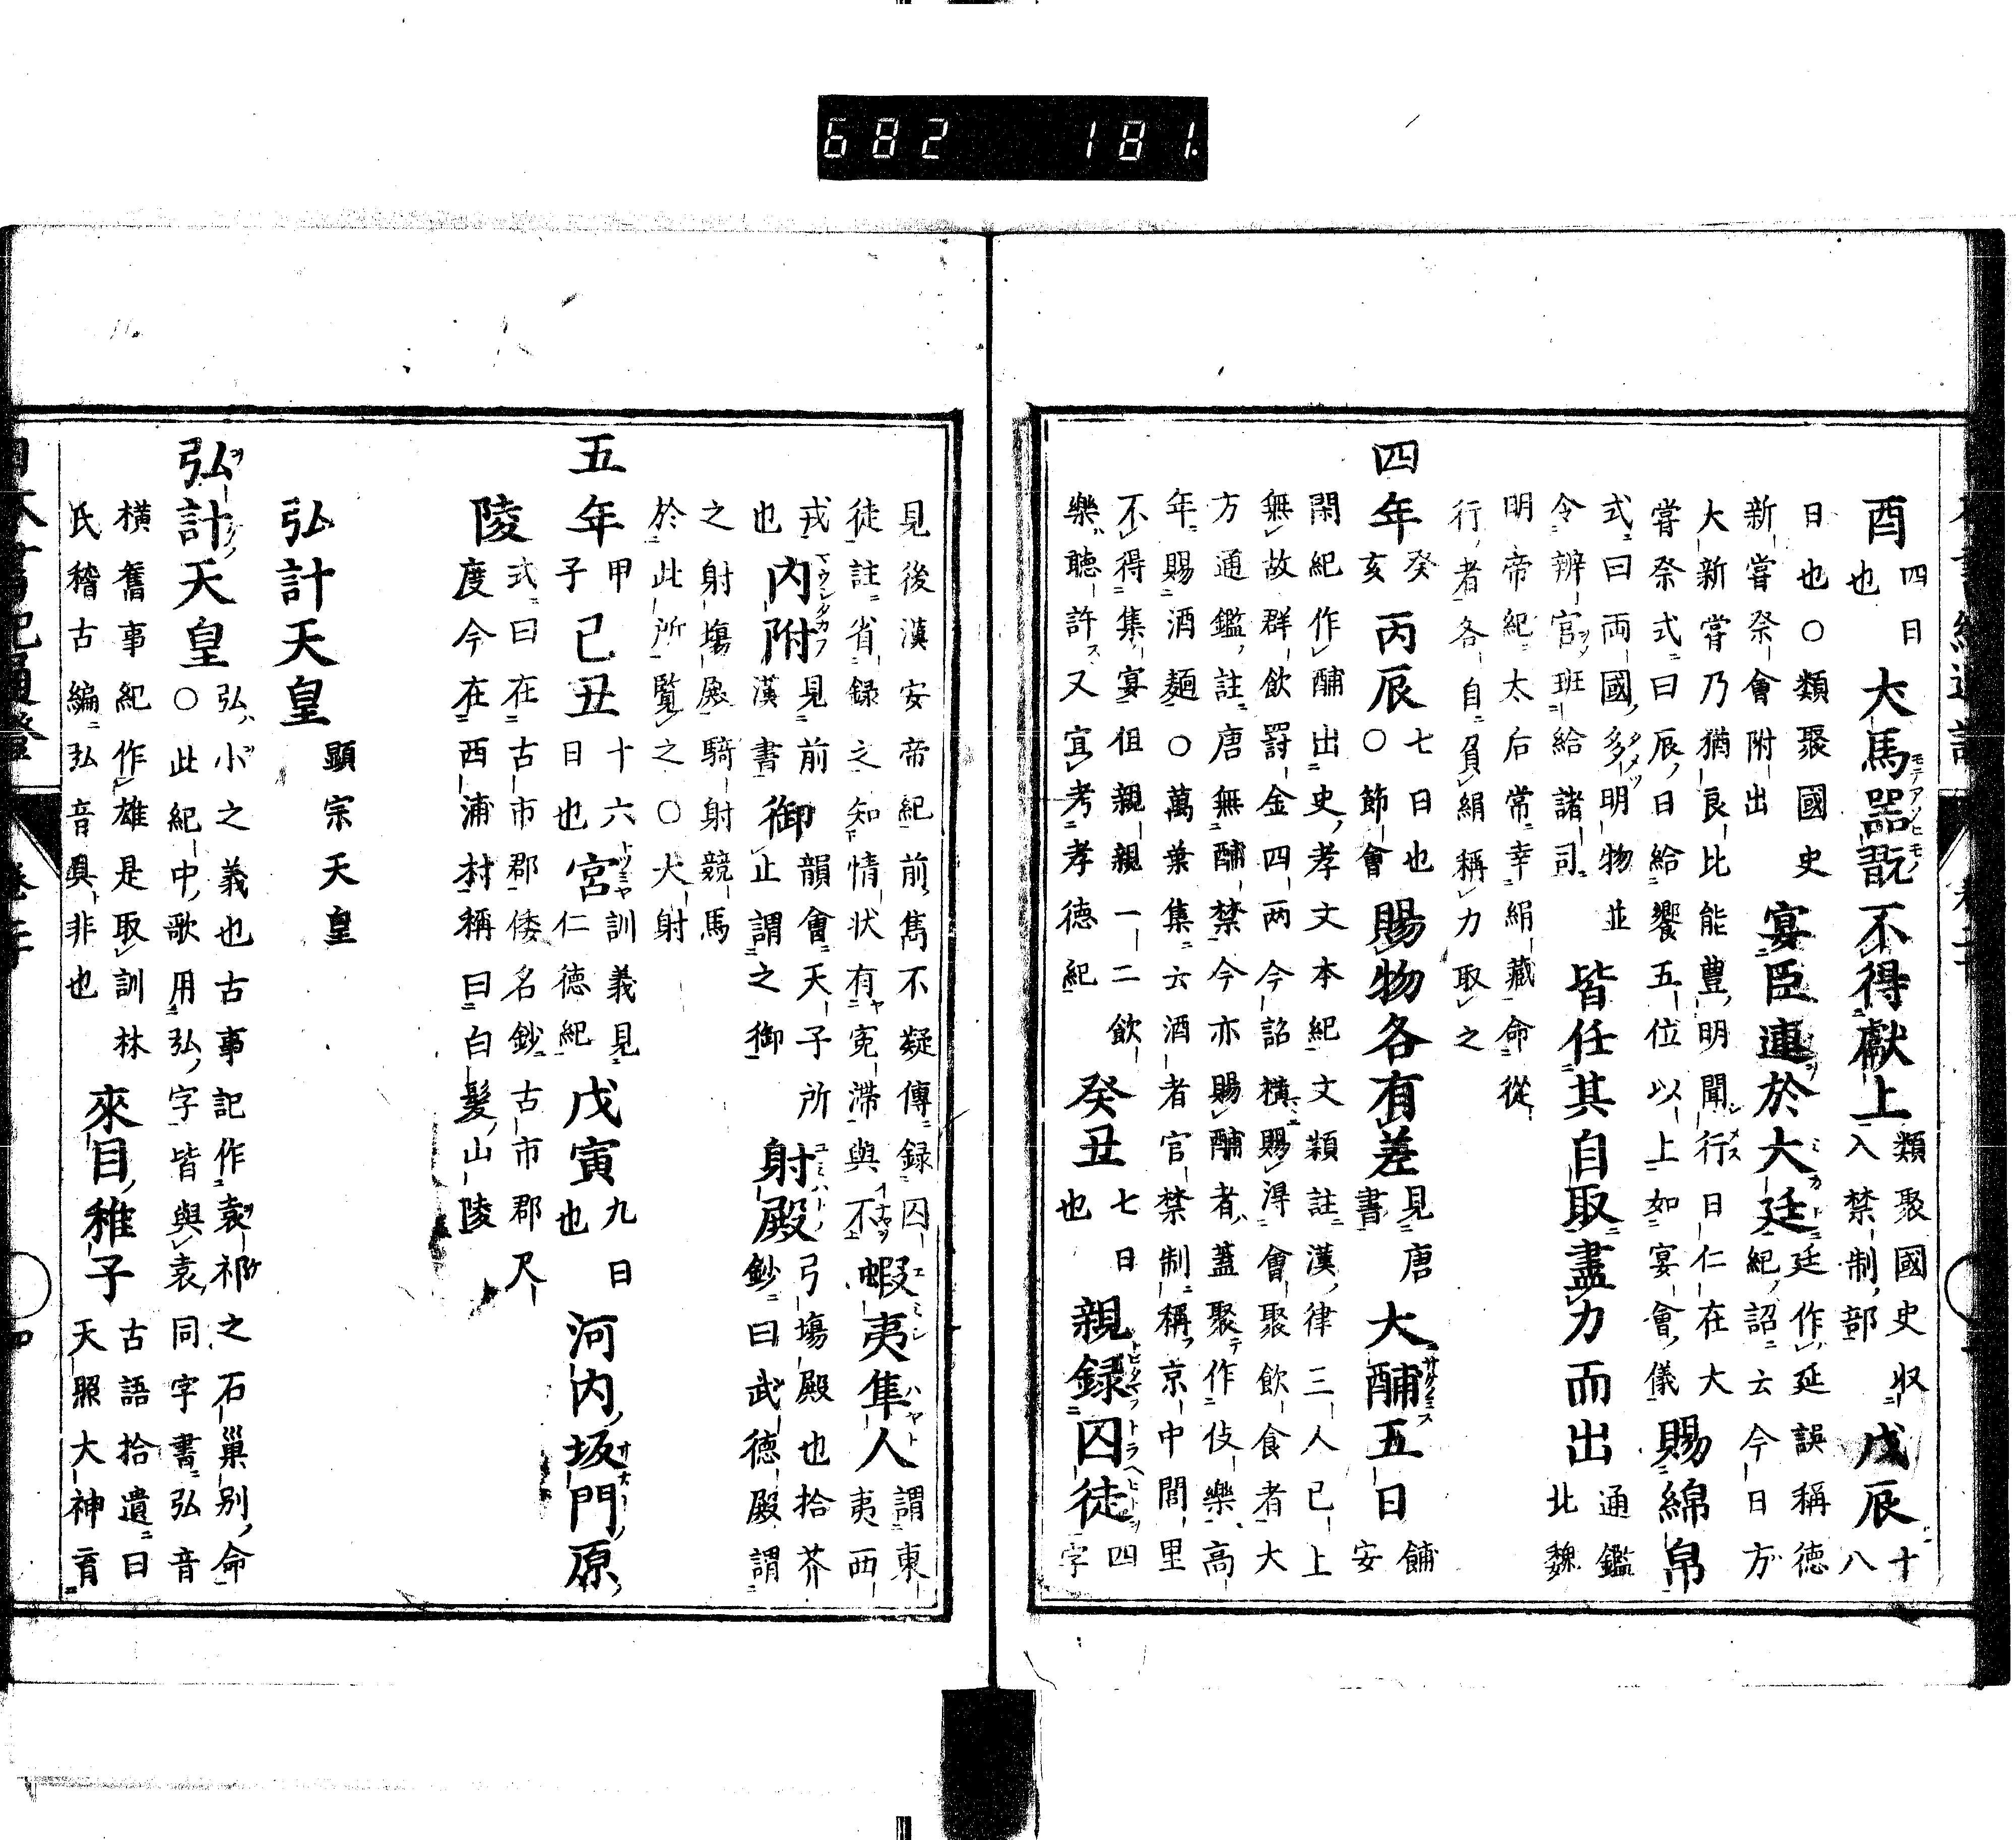 682 181.
酉 四日也 犬馬器翫不得獻上 類聚國史収入禁制部 戊辰 十八
日也○類聚國史新嘗祭會附出 宴臣連於大廷 廷作延誤稱德紀詔云今日方
大新嘗乃猶良比能豊明聞行日仁在大嘗祭式曰辰日給饗五位以上如宴會儀 賜綿帛
式曰両國多明物並令辨官班給諸司 皆任其自取盡力而出 通鑑北魏
明帝紀太后常幸絹藏命從行者各自負絹稱力取之
四年 癸亥 丙辰 七日也○節會 賜物各有差 見唐書 大酺五日 酺安
閑紀作酺出史孝文本紀文類註漢律三人已上
無故群飲罰金四両今詔横賜得會聚飲食者大
方通鑑註唐無酺禁今亦賜酺者蓋聚作伎樂高
年賜酒麺○萬葉集云酒者官禁制稱京中閭里
不得集宴但親親一二飲樂聽許又宜考孝德紀 癸丑 七日也 親録囚徒 四字
見後漢安帝紀前雋不疑傳録囚徒註省録之知情状有寃滞與不 蝦夷隼人 謂東夷西
戎也 内附 見前漢書 御 韻會天子所止謂之御 射殿 弓塲殿也拾芥鈔曰武德殿謂
之射塲殿騎射競馬於此所覧之○大射
五年 甲子 己丑 十六日也 宮 訓義見仁德紀 戊寅 九日也 河内坂門原
陵 式曰在古市郡倭名鈔古市郡尺度今在西浦村稱曰白髮山陵
弘計天皇 顯宗天皇
弘計天皇 弘小之義也古事記作袁祁之石巢別命○此紀中歌用弘字皆與袁同字書弘音
横舊事紀作雄是取訓林氏稽古編弘音奥非也 來目稚子 古語拾遺曰天照大神育